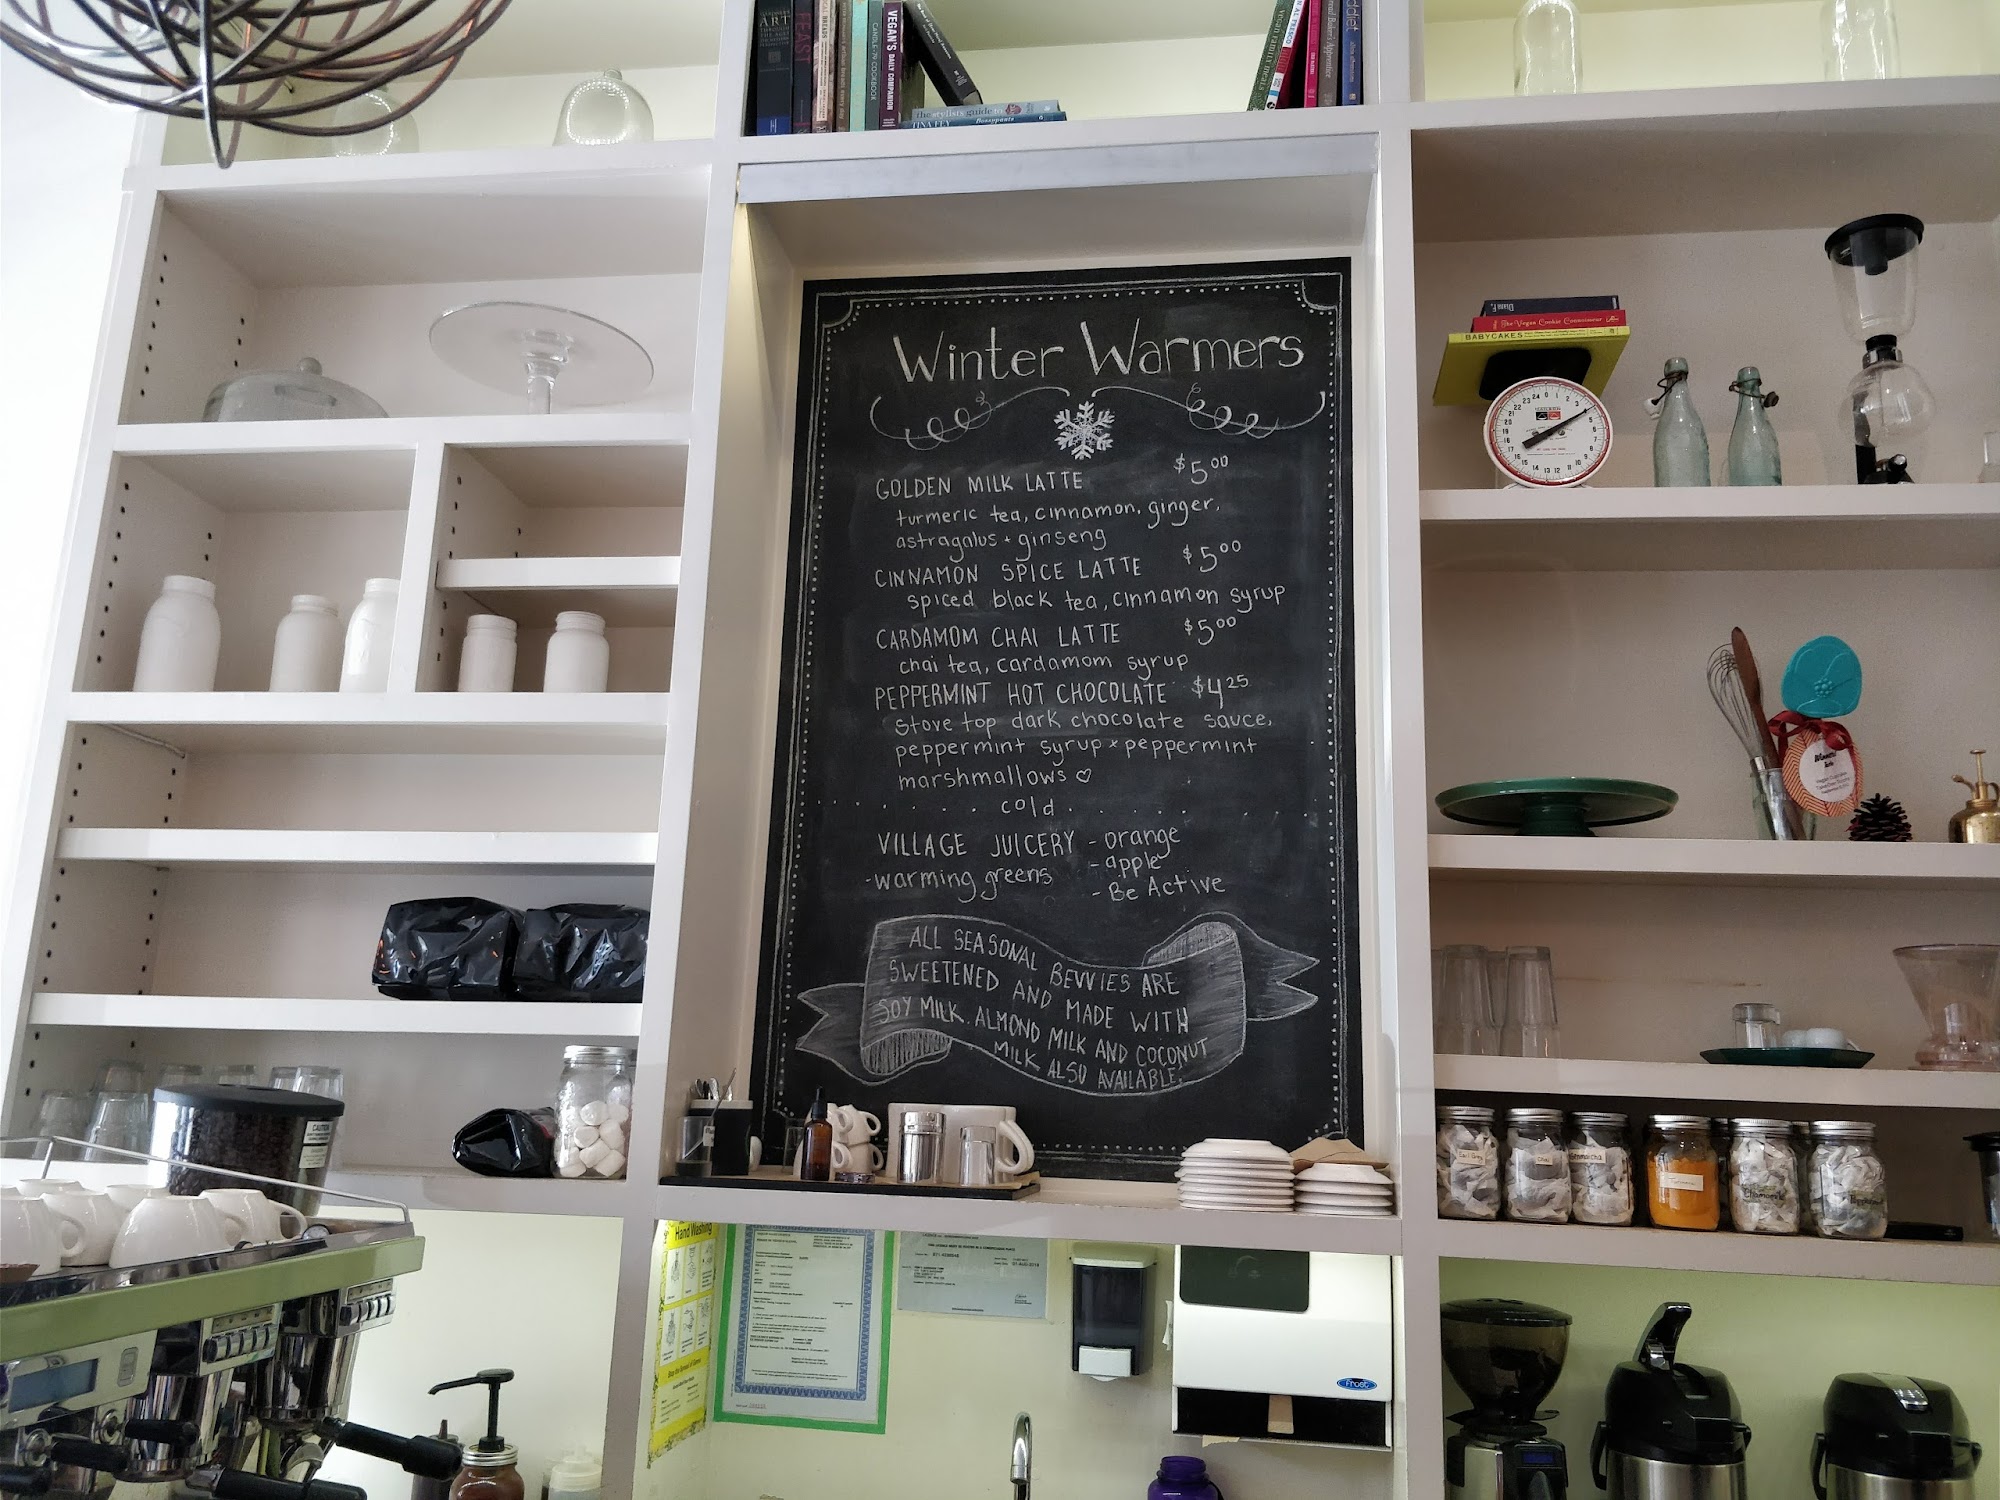 FEAST
BREADS
CANDLE 79 COOKBOOK
VEGAN'S DAILY COMPANION
the stylist's guide to
TINA FEY Bossypants
VEGAN FAMILY MEALS
The Vegan Cookie Connoisseur
BABYCAKES
Winter Warmers
GOLDEN MILK LATTE $5.00
turmeric tea, cinnamon, ginger,
astragalus + ginseng
CINNAMON SPICE LATTE $5.00
spiced black tea, cinnamon syrup
CARDAMOM CHAI LATTE $5.00
chai tea, cardamom syrup
PEPPERMINT HOT CHOCOLATE $4.25
stove top dark chocolate sauce,
peppermint syrup + peppermint
marshmallows ♡
cold
VILLAGE JUICERY - orange
- apple
- warming greens
- Be Active
ALL SEASONAL BEVVIES ARE
SWEETENED AND MADE WITH
SOY MILK. ALMOND MILK AND COCONUT
MILK ALSO AVAILABLE.
CAUTION
Earl Grey
Chai
Chamomile
Peppermint
Hand Washing
Frost